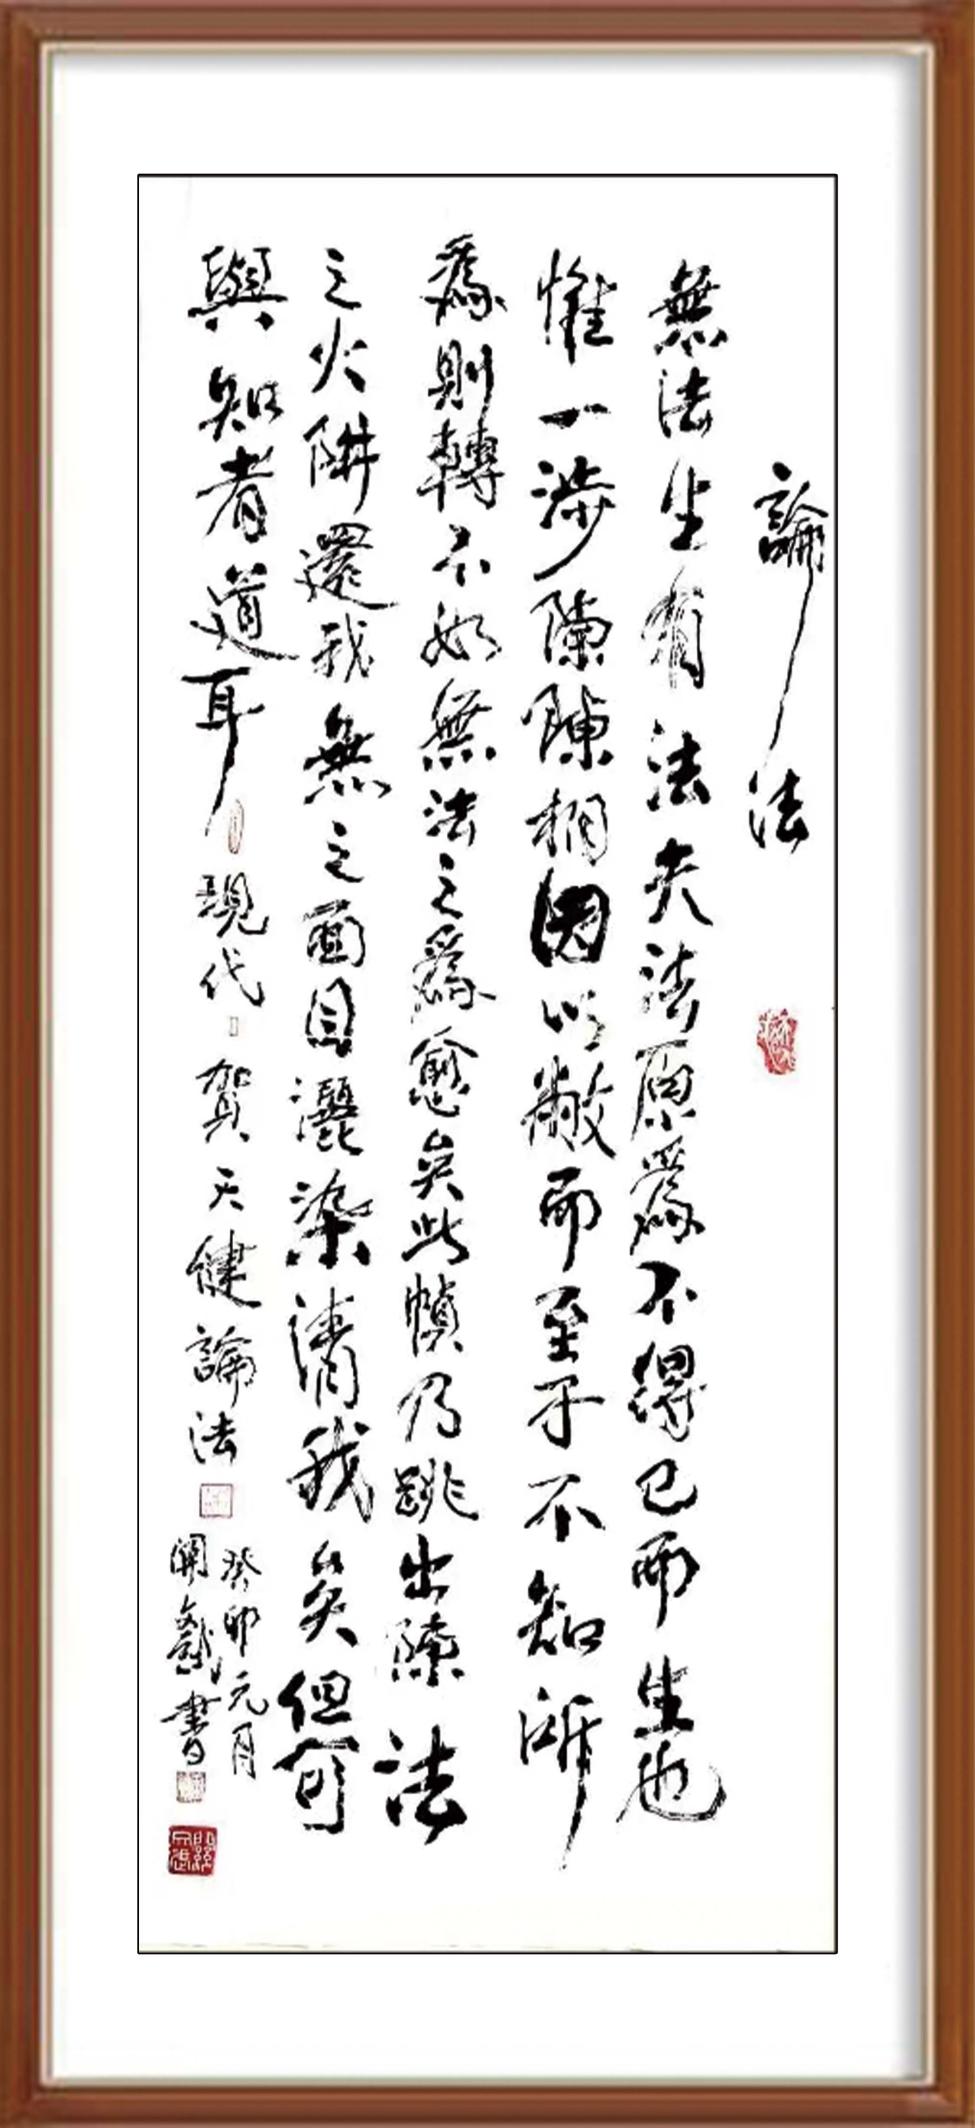 論法
無法生有法夫法原爲不得已而生也
惟一涉陳陳相因以敝而至于不知所
爲則轉不如無法之爲愈矣此幀乃跳出陳法
之火阱還我無之面目灑染清我矣但可
與知者道耳
現代
賀天健論法
癸卯元月
開懿書